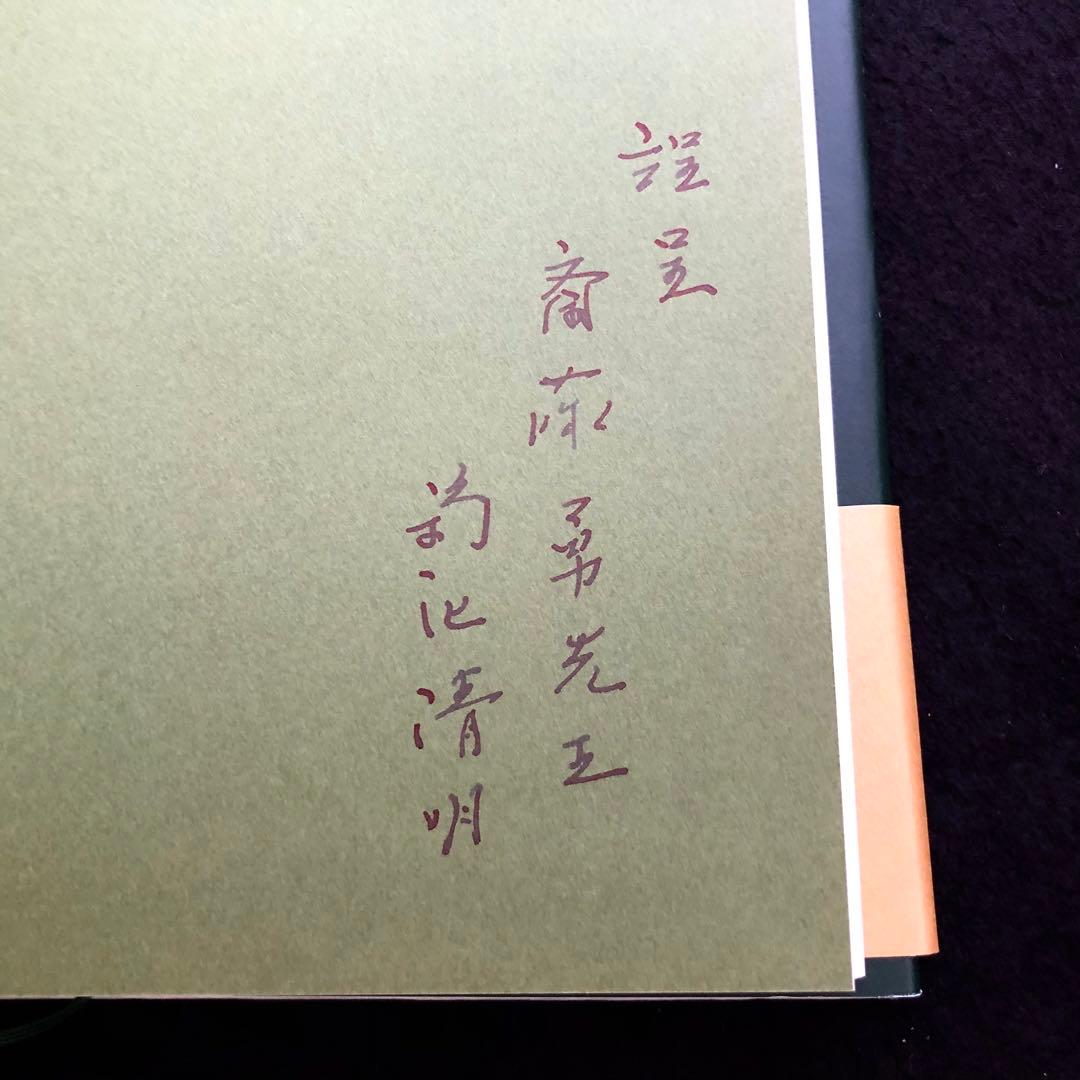 謹呈
斎藤勇先生
菊池清明